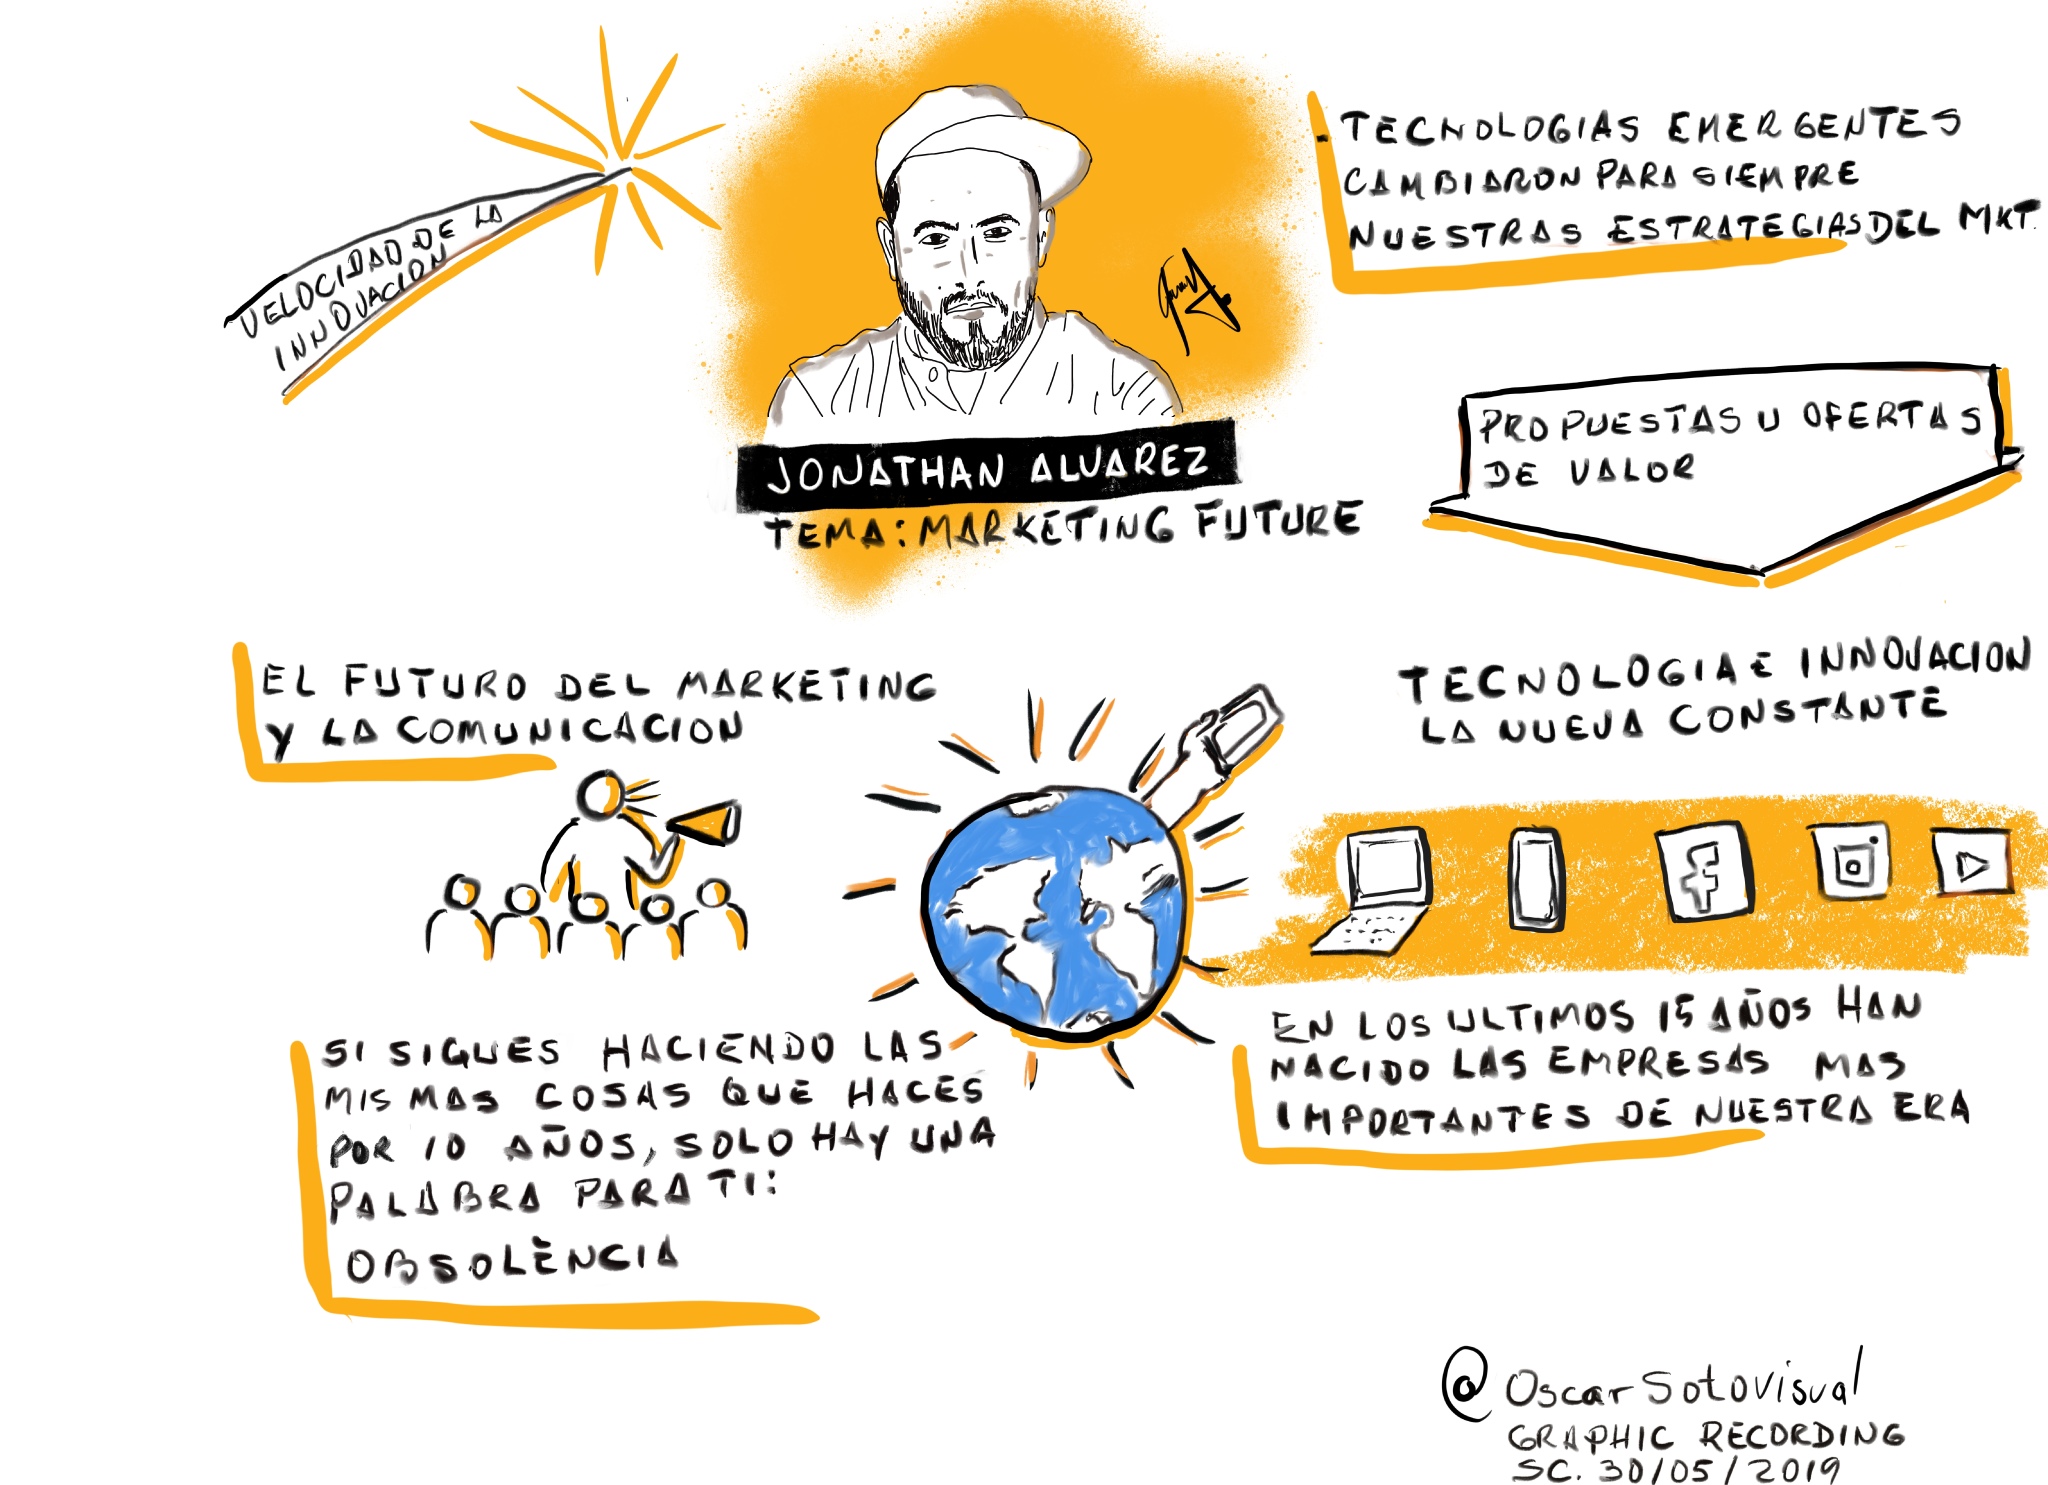 VELOCIDAD DE LA
INNOVACION
JONATHAN ALVAREZ
TEMA: MARKETING FUTURE
. TECNOLOGIAS EMERGENTES
CAMBIARON PARA SIEMPRE
NUESTRAS ESTRATEGIAS DEL MKT.
PROPUESTAS U OFERTAS
DE VALOR
EL FUTURO DEL MARKETING
Y LA COMUNICACION
TECNOLOGIA E INNOVACION
LA NUEVA CONSTANTE
SI SIGUES HACIENDO LAS
MISMAS COSAS QUE HACES
POR 10 AÑOS, SOLO HAY UNA
PALABRA PARA TI:
OBSOLÈNCIA
EN LOS ULTIMOS 15 AÑOS HAN
NACIDO LAS EMPRESAS MAS
IMPORTANTES DE NUESTRA ERA
@OscarSotovisual
GRAPHIC RECORDING
SC. 30/05/2019